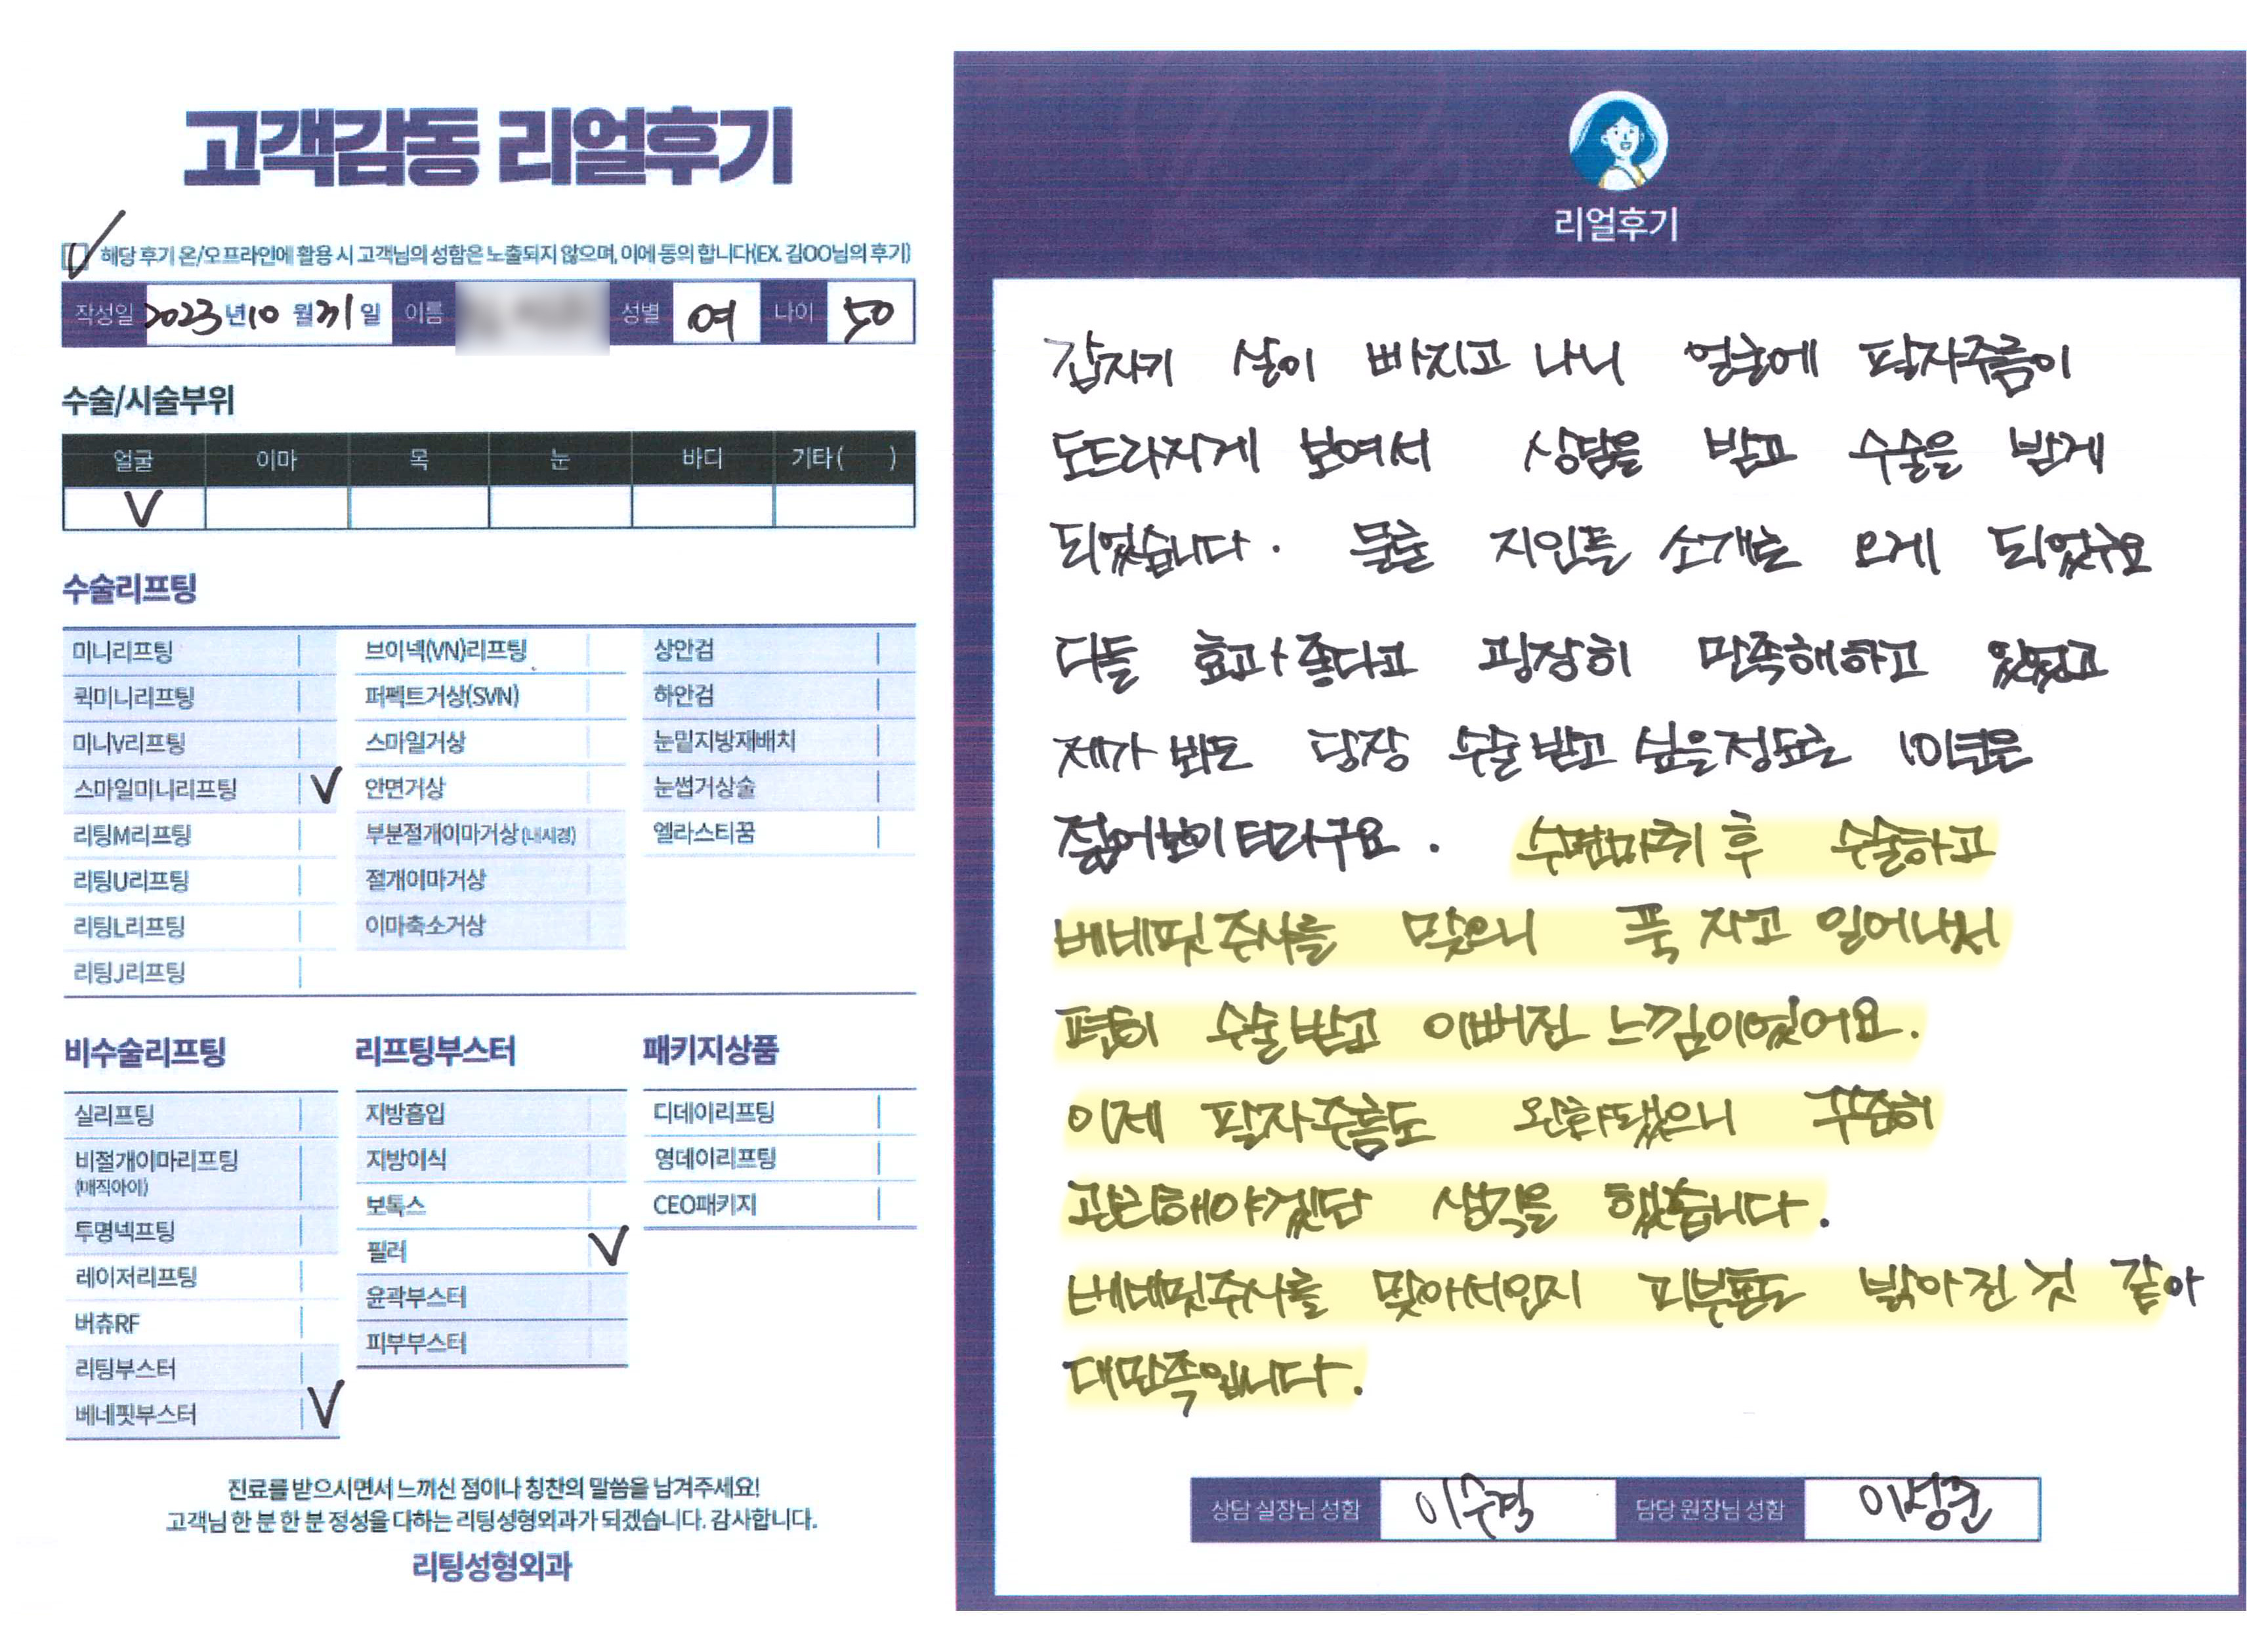 고객감동 리얼후기
해당 후기 온/오프라인에 활용 시 고객님의 성함은 노출되지 않으며, 이에 동의 합니다(EX. 김OO님의 후기)
작성일 2023년 10월 31일 이름 성별 여 나이 50
수술/시술부위
얼굴 이마 목 눈 바디 기타( )
V
수술리프팅
미니리프팅 브이넥(VN)리프팅 상안검
퀵미니리프팅 퍼펙트거상(SVN) 하안검
미니V리프팅 스마일거상 눈밑지방재배치
스마일미니리프팅 V 안면거상 눈썹거상술
리팅M리프팅 부분절개이마거상(내시경) 엘라스티꿈
리팅U리프팅 절개이마거상
리팅L리프팅 이마축소거상
리팅J리프팅
비수술리프팅 리프팅부스터 패키지상품
실리프팅 지방흡입 디데이리프팅
비절개이마리프팅 지방이식 영데이리프팅
(매직아이)
투명넥프팅 보톡스 CEO패키지
레이저리프팅 필러 V
버츄RF 윤곽부스터
리팅부스터 피부부스터
베네핏부스터 V
진료를 받으시면서 느끼신 점이나 칭찬의 말씀을 남겨주세요!
고객님 한 분 한 분 정성을 다하는 리팅성형외과가 되겠습니다. 감사합니다.
리팅성형외과
리얼후기
갑자기 살이 빠지고 나니 얼굴에 팔자주름이
도드라지게 보여서 상담을 받고 수술을 받게
되었습니다. 물론 지인들 소개로 오게 되었구요
다들 효과 좋다고 굉장히 만족해하고 있었고
제가 봐도 당장 수술 받고 싶을정도로 10년은
젊어보이더라구요. 수면마취 후 수술하고
베네핏 주사를 맞으니 푹 자고 일어나서
편히 수술받고 이뻐진 느낌이었어요.
이제 팔자주름도 완화됐으니 꾸준히
관리해야겠단 생각을 했습니다.
베네핏주사를 맞아서인지 피부톤도 밝아진 것 같아
대만족입니다.
상담 실장님 성함 담당 원장님 성함 이성준